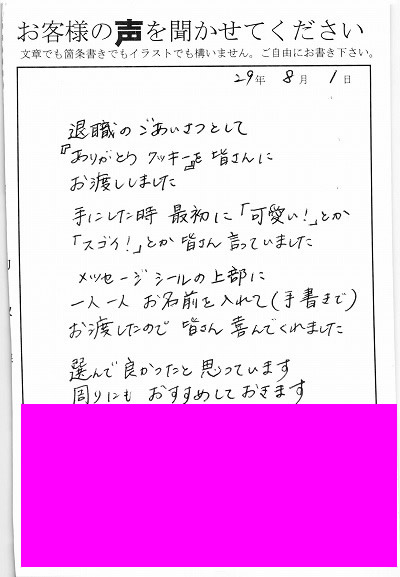 お客様の声を聞かせてください
文章でも箇条書きでもイラストでも構いません。ご自由にお書き下さい。
29年 8月 1日
退職のごあいさつとして
『ありがとう クッキー』を 皆さんに
お渡ししました
手にした時 最初に「可愛い!」とか
「スゴイ!」とか 皆さん 言っていました
メッセージシールの上部に
一人一人 お名前を入れて(手書きで)
お渡したので 皆さん 喜んでくれました
選んで良かったと思っています
周りにも おすすめしておきます